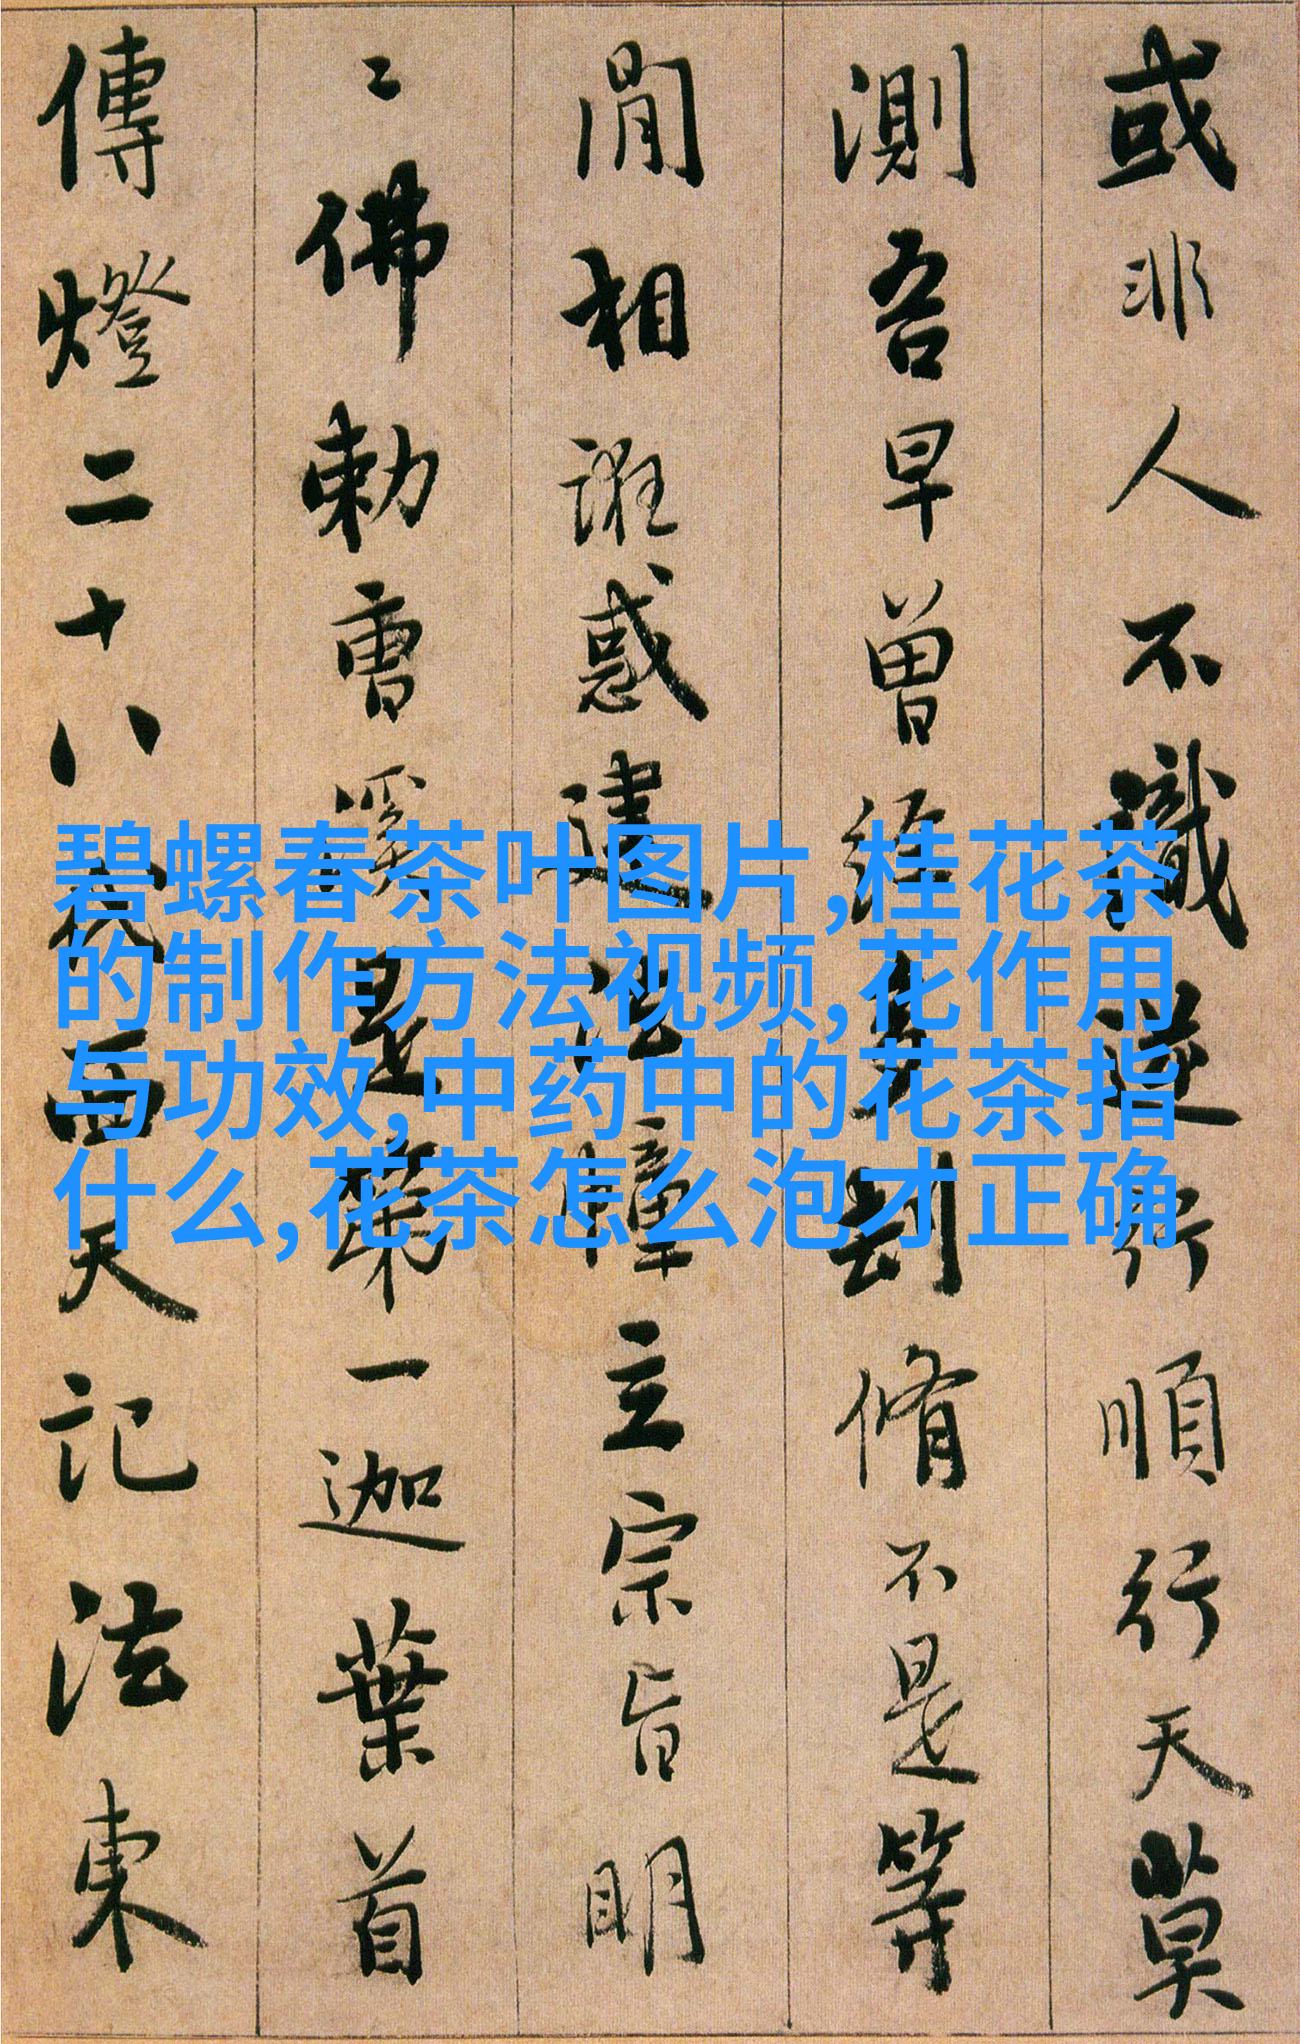 或非人不識逆行順行天莫
測吾早曾經多劫脩不是等
閒相誑惑建法幢立宗旨明
〻佛勅曹溪是第一迦葉首
傳燈二十八代西天記法東
碧螺春茶叶图片,桂花茶
的制作方法视频,花作用
与功效,中药中的花茶指
什么,花茶怎么泡才正确